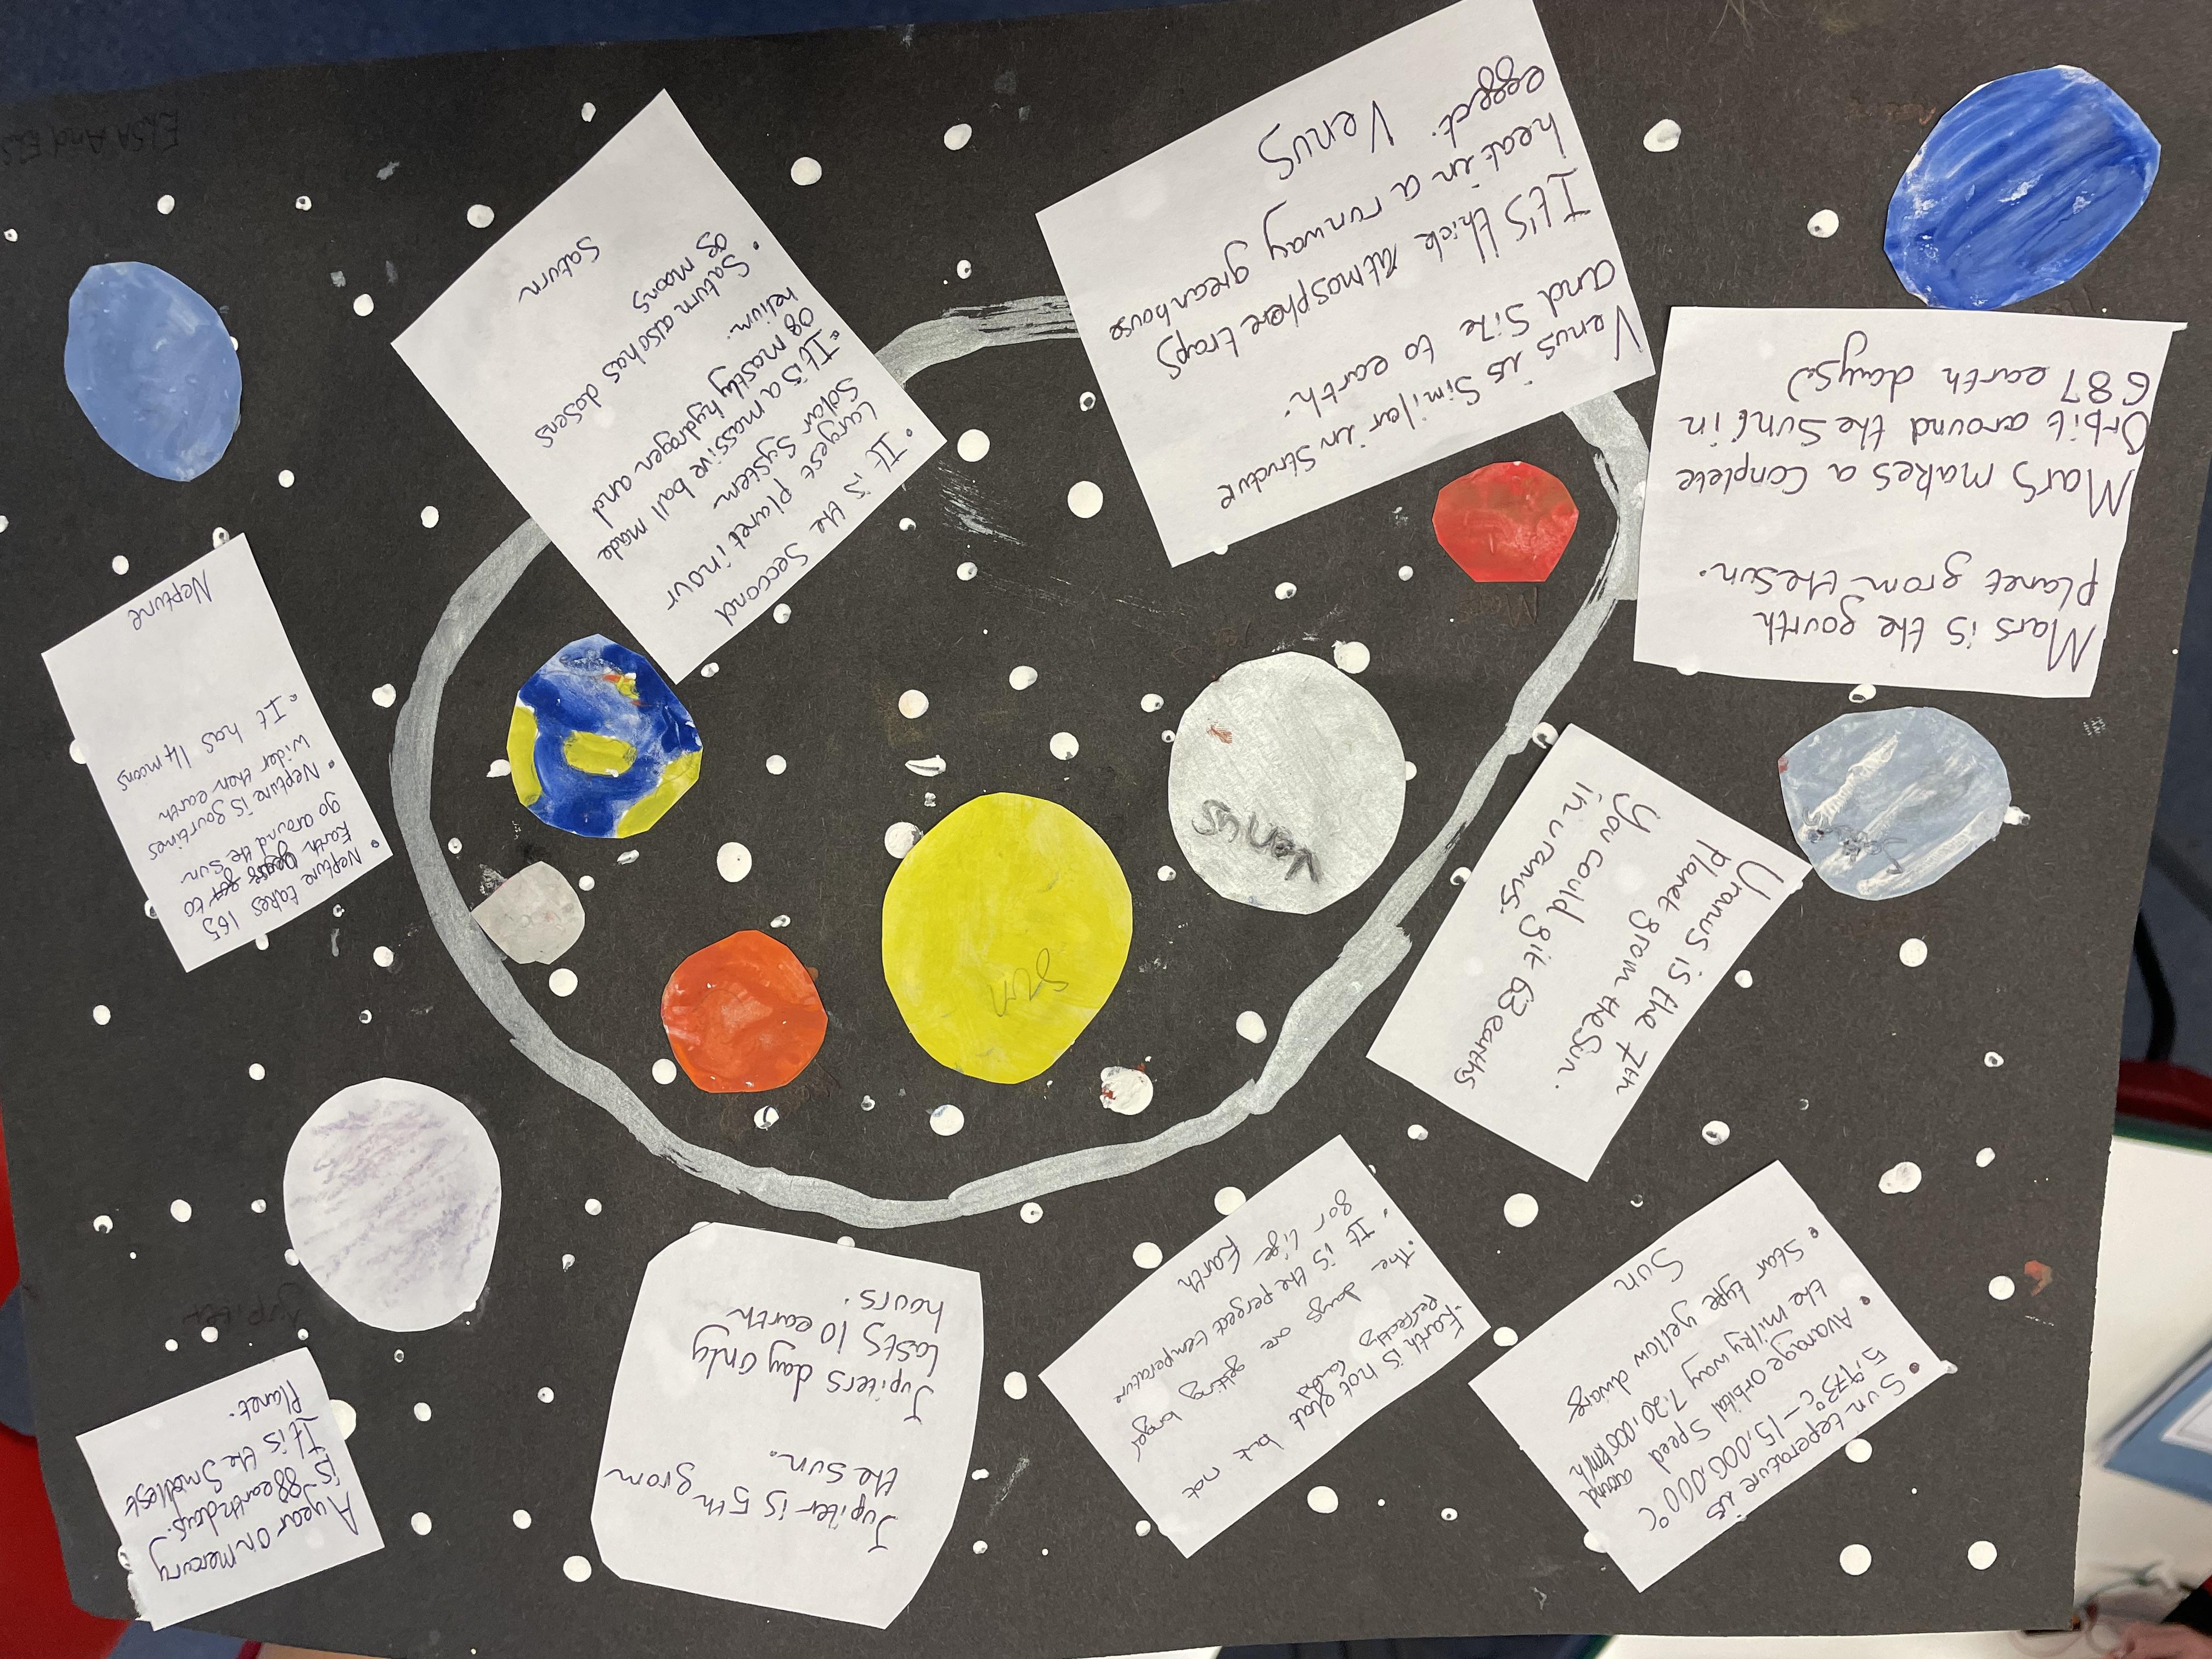 • Sun teperature is
5,973°c - 15,000,000°c
• Avarage orbital Speed around
the milky way 720,000km/h
• Star type yellow dwarf
Sun
-Earth is not flat but not
perfectly
• The days are getting longer
• It is the perfect temperature
for life Earth
Jupiter is 5th from
the sun.
Jupiters day only
lasts 10 earth
hours.
A year on mercury
is 88 earth days.
It is the Smallest
Planet.
Jupiter
Uranus is the 7th
Planet from the Sun.
You could fit 63 earths
in uranus.
sun
Venus
• Neptune takes 165
Earth to
go around the Sun
• Neptune is fourtimes
wider then earth
• It has 14 moons
Neptune
Mars is the fourth
planet from the sun.
Mars makes a Conplete
Orbit around the Sun (in
687 earth days)
Venus is Similar in Structure
and Size to earth.
It's thick Atmosphere traps
heat in a runway greanhouse
effect. Venus
• It is the Seccond
Largest planet in our
Solar System
• It is a massive ball made
of mostly hydrogen and
helium.
• Saturn also has dosens
of moons
Saturn
ELSA And ELS